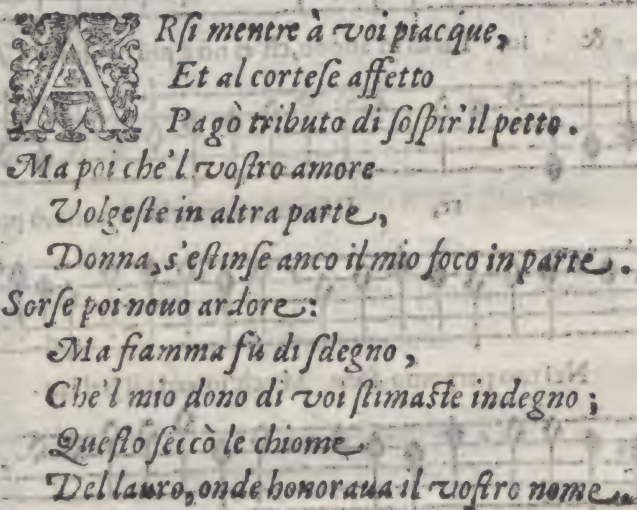 ARſi mentre à voi piacque,
Et al corteſe affetto
Pagò tributo di ſoſpir'il petto.
Ma poi che'l voſtro amore
Volgeſte in altra parte,
Donna, s'eſtinſe anco il mio foco in parte.
Sorſe poi nouo ardore:
Ma fiamma fù di ſdegno,
Che'l mio dono di voi ſtimaſte indegno;
Queſto ſeccò le chiome
Del lauro, onde honoraua il voſtro nome.